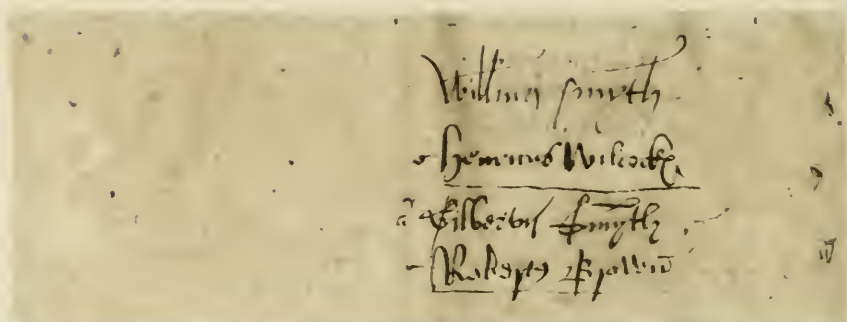 Willmus Smyth
Henricus Wilcockes
Gilbertus Smyth
Robertus Brown